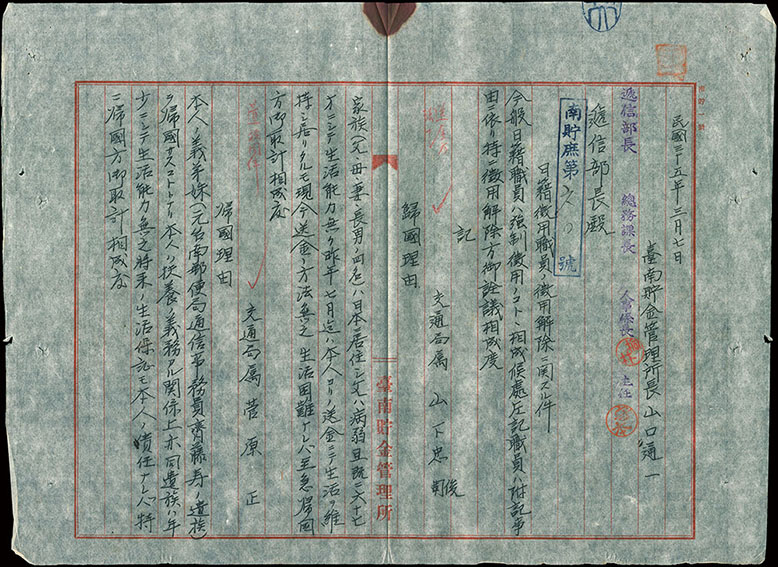 民國三十五年三月七日
臺南貯金管理所長山口通一
遞信部長　總務課長　人事係長　主任
遞信部長殿
南貯庶第　號
日籍徵用職員ノ徵用解除ニ関スル件
今般日籍職員ハ強制徵用ノコトニ相成候處左記職員ハ附記事
由ニ依リ特ニ徵用解除方御詮議相成度
記
交通局属　山下忠
歸國理由
家族(父、母、妻、長男ノ四名)ハ日本ニ居住シ父ハ病弱且既ニ六十七
才ニシテ生活能力無ク昨年七月迄ハ本人ヨリノ送金ニテ生活ヲ維
持シ居リタルモ現今送金ノ方法無之生活困難ナレバ至急歸國
方御取計相成度
臺南貯金管理所
交通局属　菅原　正
歸國理由
本人ノ義弟妹(元台南郵便局通信事務員齊藤寿ノ遺族)
ヲ歸國サスコトトナリ本人ハ扶養ノ義務アル関係上亦同遺族ハ年
少ニシテ生活能力無之将来ノ生活保証モ本人ノ責任ナレバ特
ニ歸國方御取計相成度